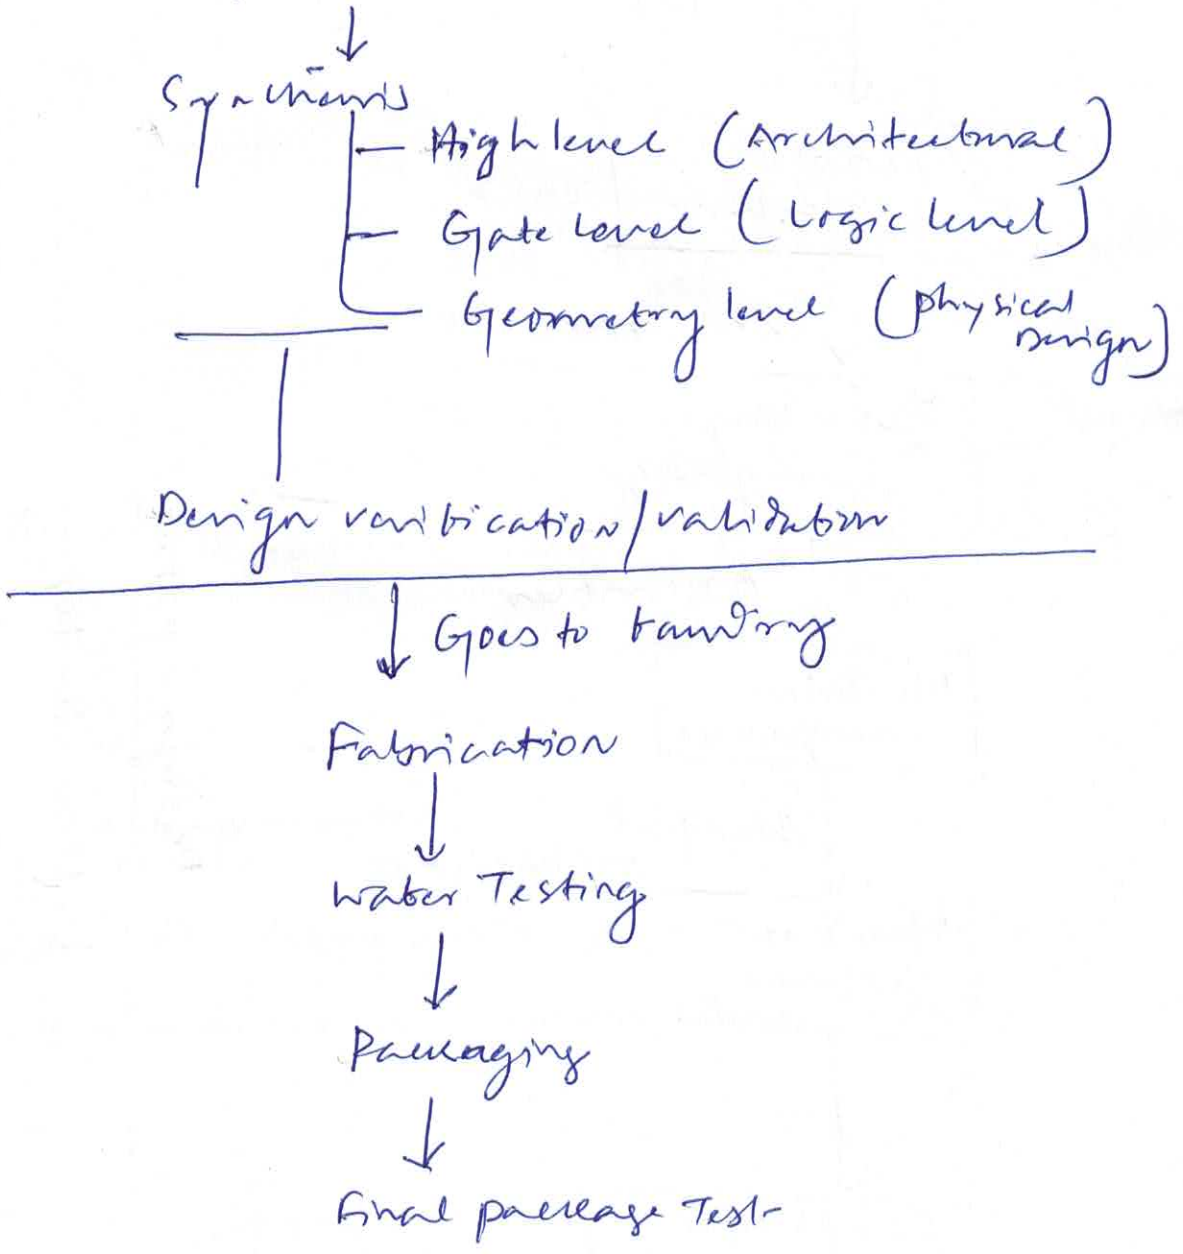 Synthesis
High level (Architectural)
Gate level (Logic level)
Geometry level (physical
Design)
Design verification/validation
Goes to foundry
Fabrication
Wafer Testing
Packaging
Final package Test